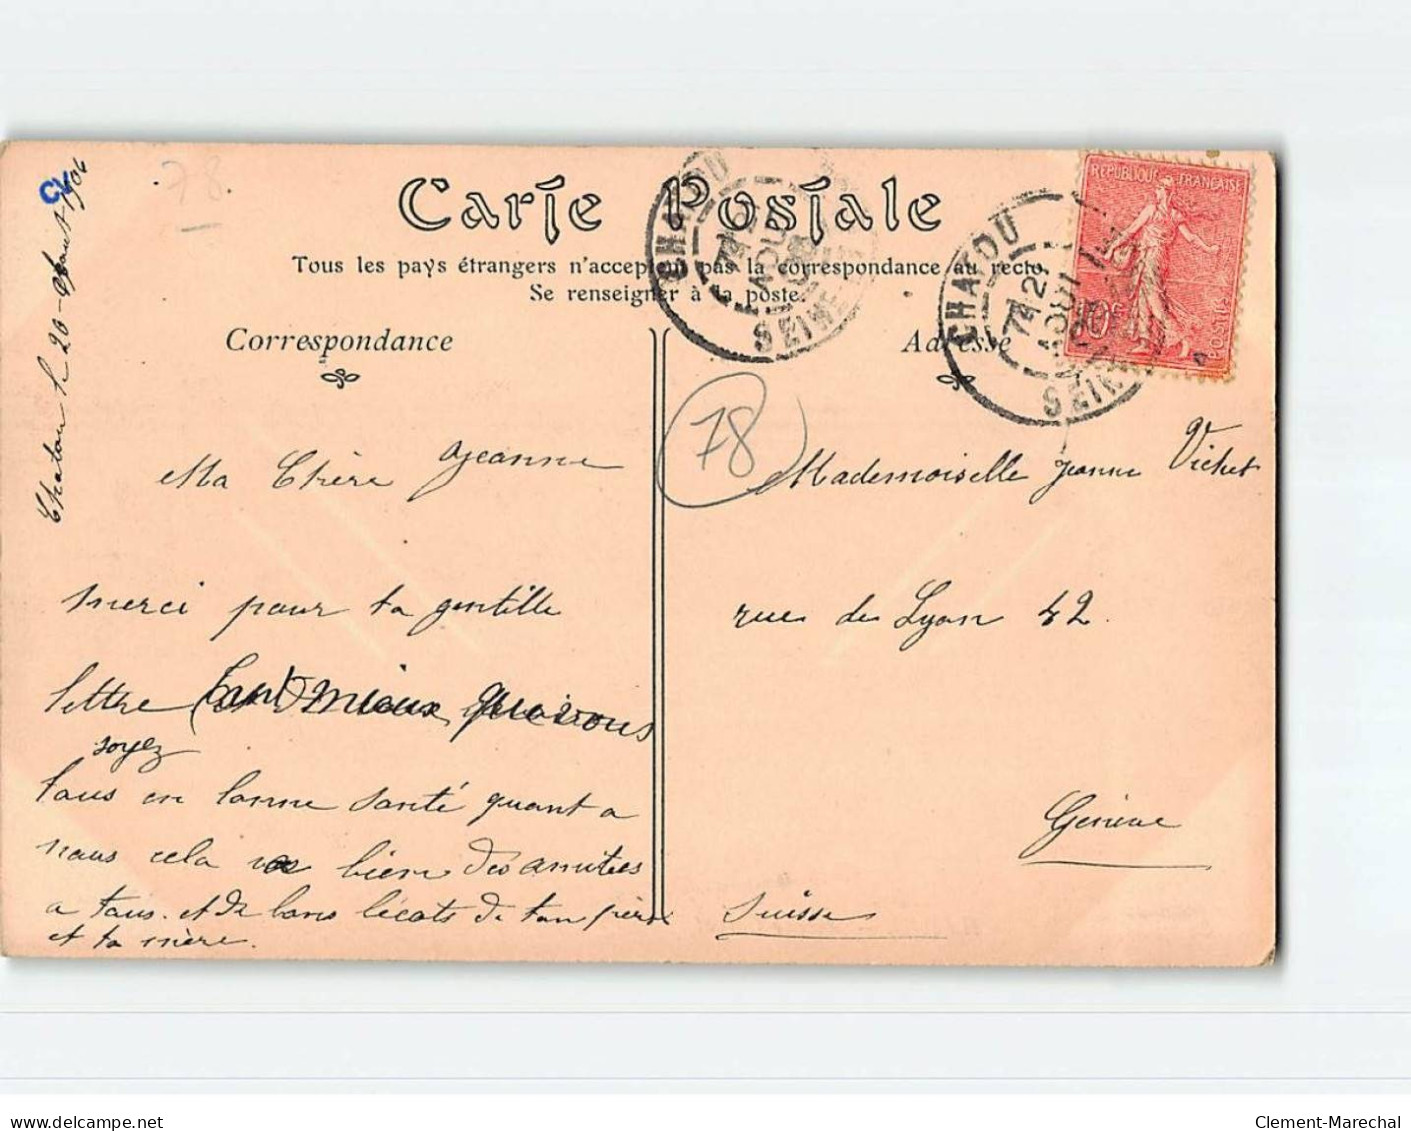 Chatou le 20 Aout 1906
CV
78
Carte Postale
Tous les pays étrangers n'acceptent pas la correspondance au recto.
Se renseigner à la poste.
Correspondance
Adresse
CHATOU
7E 21
AOUT
06
SEINE
CHATOU
7E 21
AOUT
SEINE
REPUBLIQUE FRANÇAISE
10c
POSTES
78
Ma Chère Jeanne
merci pour ta gentille
lettre tant mieux que vous
soyez
tous en bonne santé quant a
nous cela va bien des amitiés
a tous. et de bons bécots de ton père
et ta mère.
Mademoiselle Jeanne Vichet
rue de Lyon 42.
Genève
Suisse
www.delcampe.net
Clement-Marechal